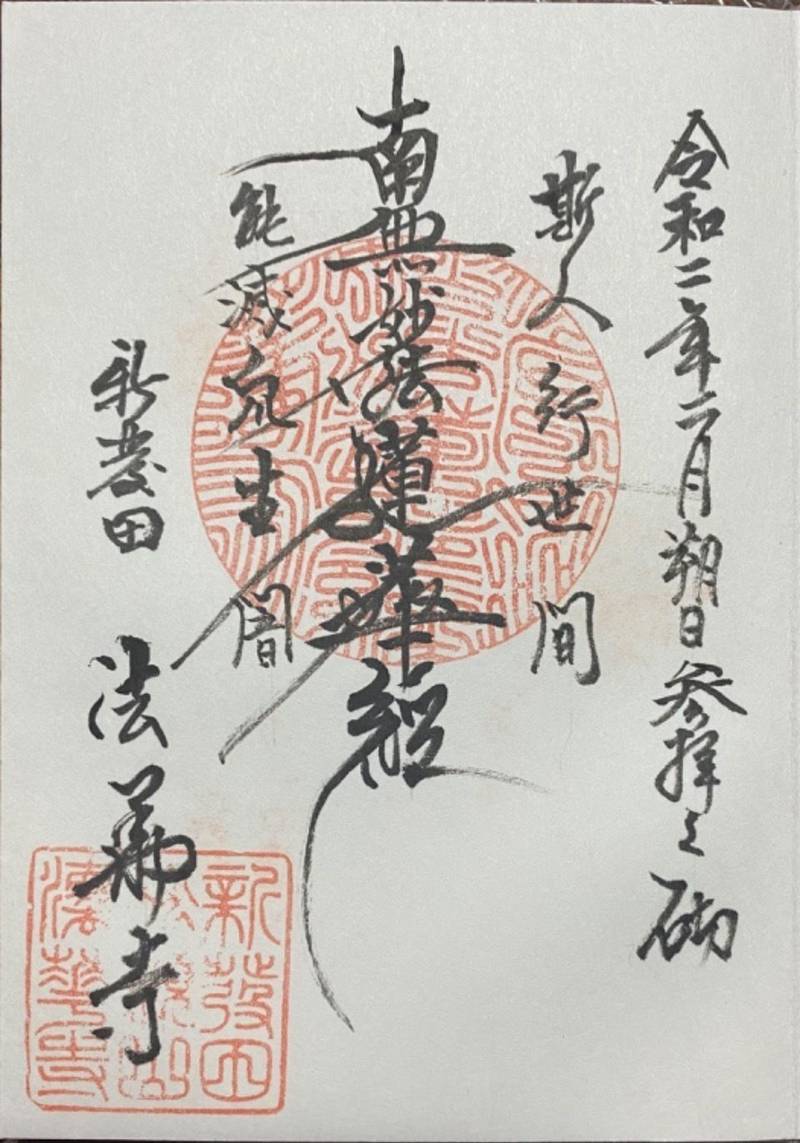 令和二年二月朔日参拝之砌
斯人行世間
南無妙法蓮華経
能滅衆生闇
新発田
法華寺